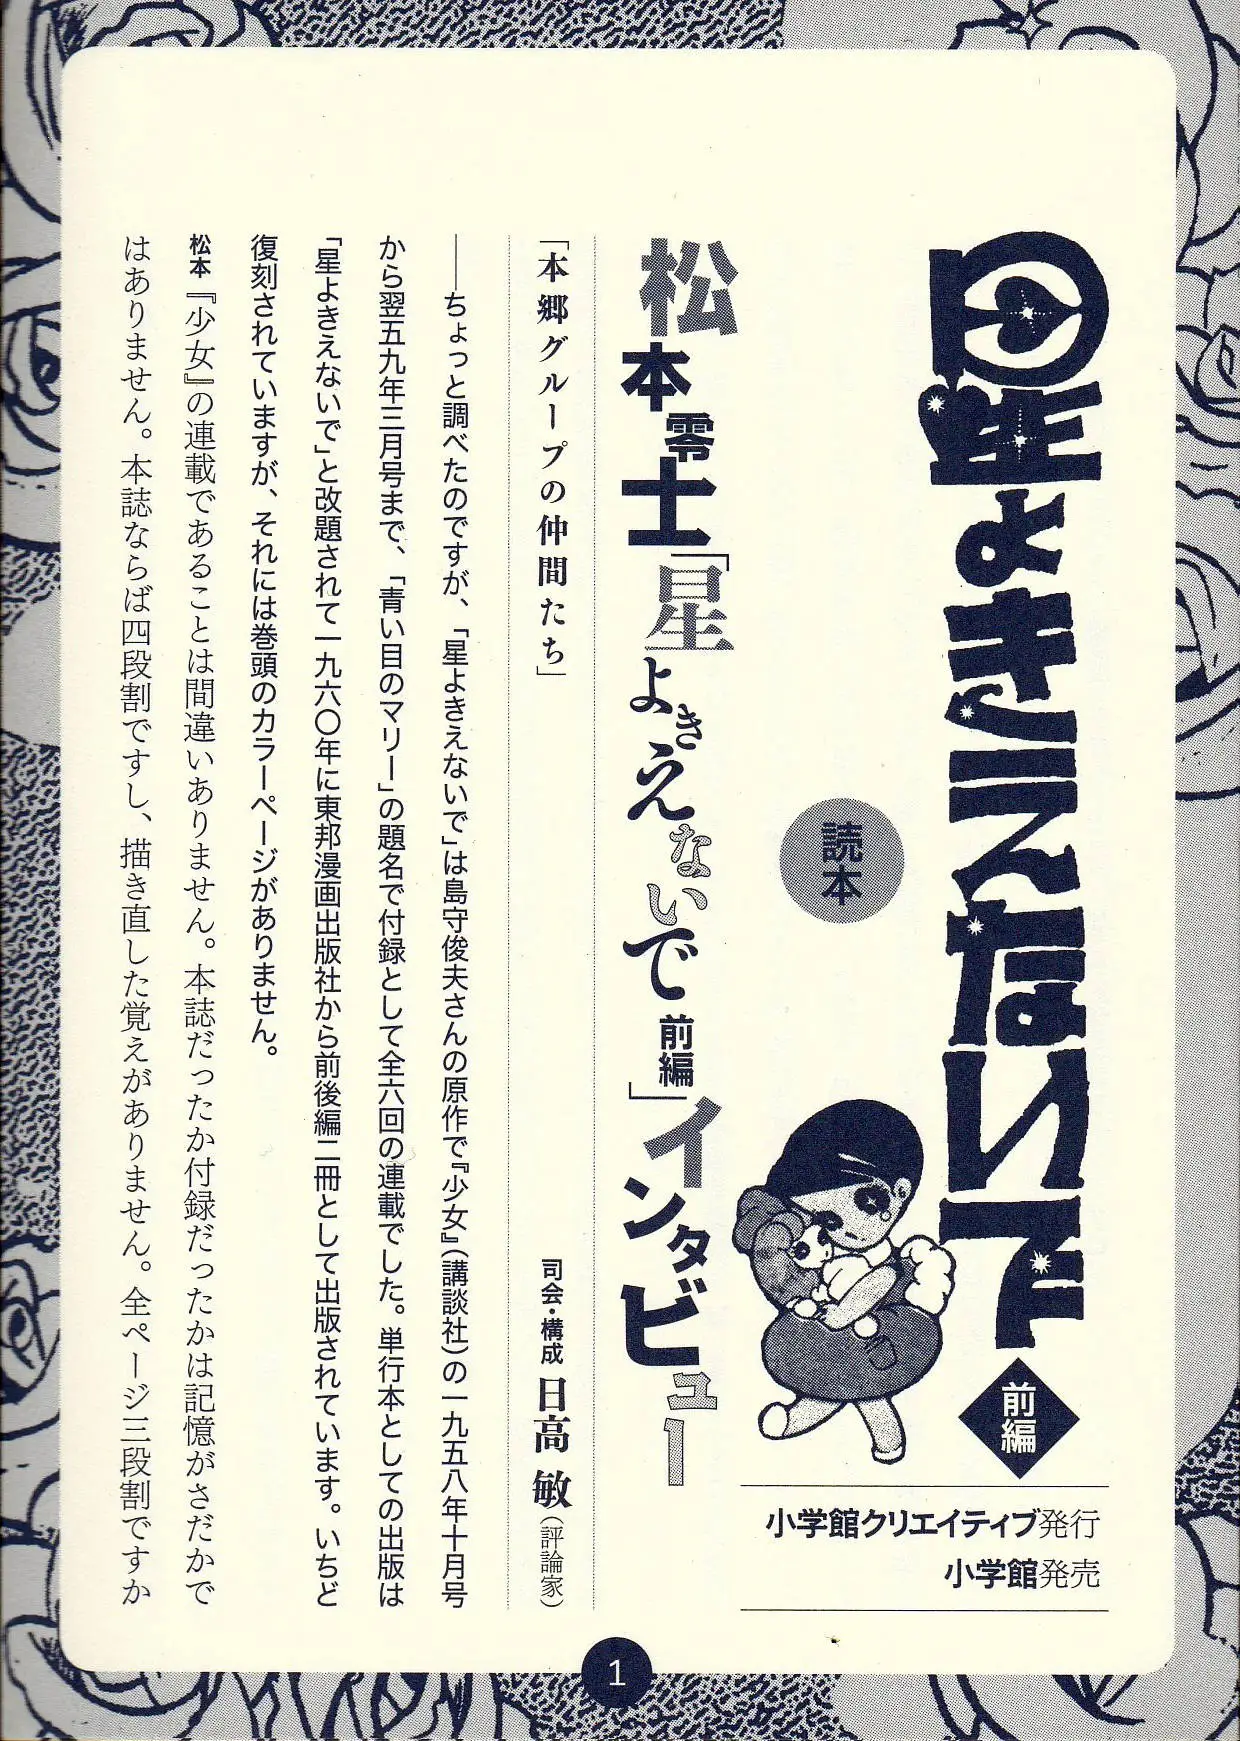 星よきえないで
前編
読本
小学館クリエイティブ発行
小学館発売
松本零士「星よきえないで 前編」インタビュー
「本郷グループの仲間たち」
司会・構成 日高 敏(評論家)
――ちょっと調べたのですが、「星よきえないで」は島守俊夫さんの原作で『少女』(講談社)の一九五八年十月号
から翌五九年三月号まで、「青い目のマリー」の題名で付録として全六回の連載でした。単行本としての出版は
「星よきえないで」と改題されて一九六〇年に東邦漫画出版社から前後編二冊として出版されています。いちど
復刻されていますが、それには巻頭のカラーページがありません。
松本 『少女』の連載であることは間違いありません。本誌だったか付録だったかは記憶がさだかで
はありません。本誌ならば四段割ですし、描き直した覚えがありません。全ページ三段割ですか
1